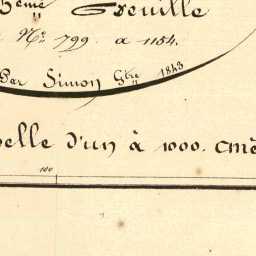 5eme Greuille
Nos 799. a 1154.
Par Simon Gtre 1843
elle d'un à 1000.
100